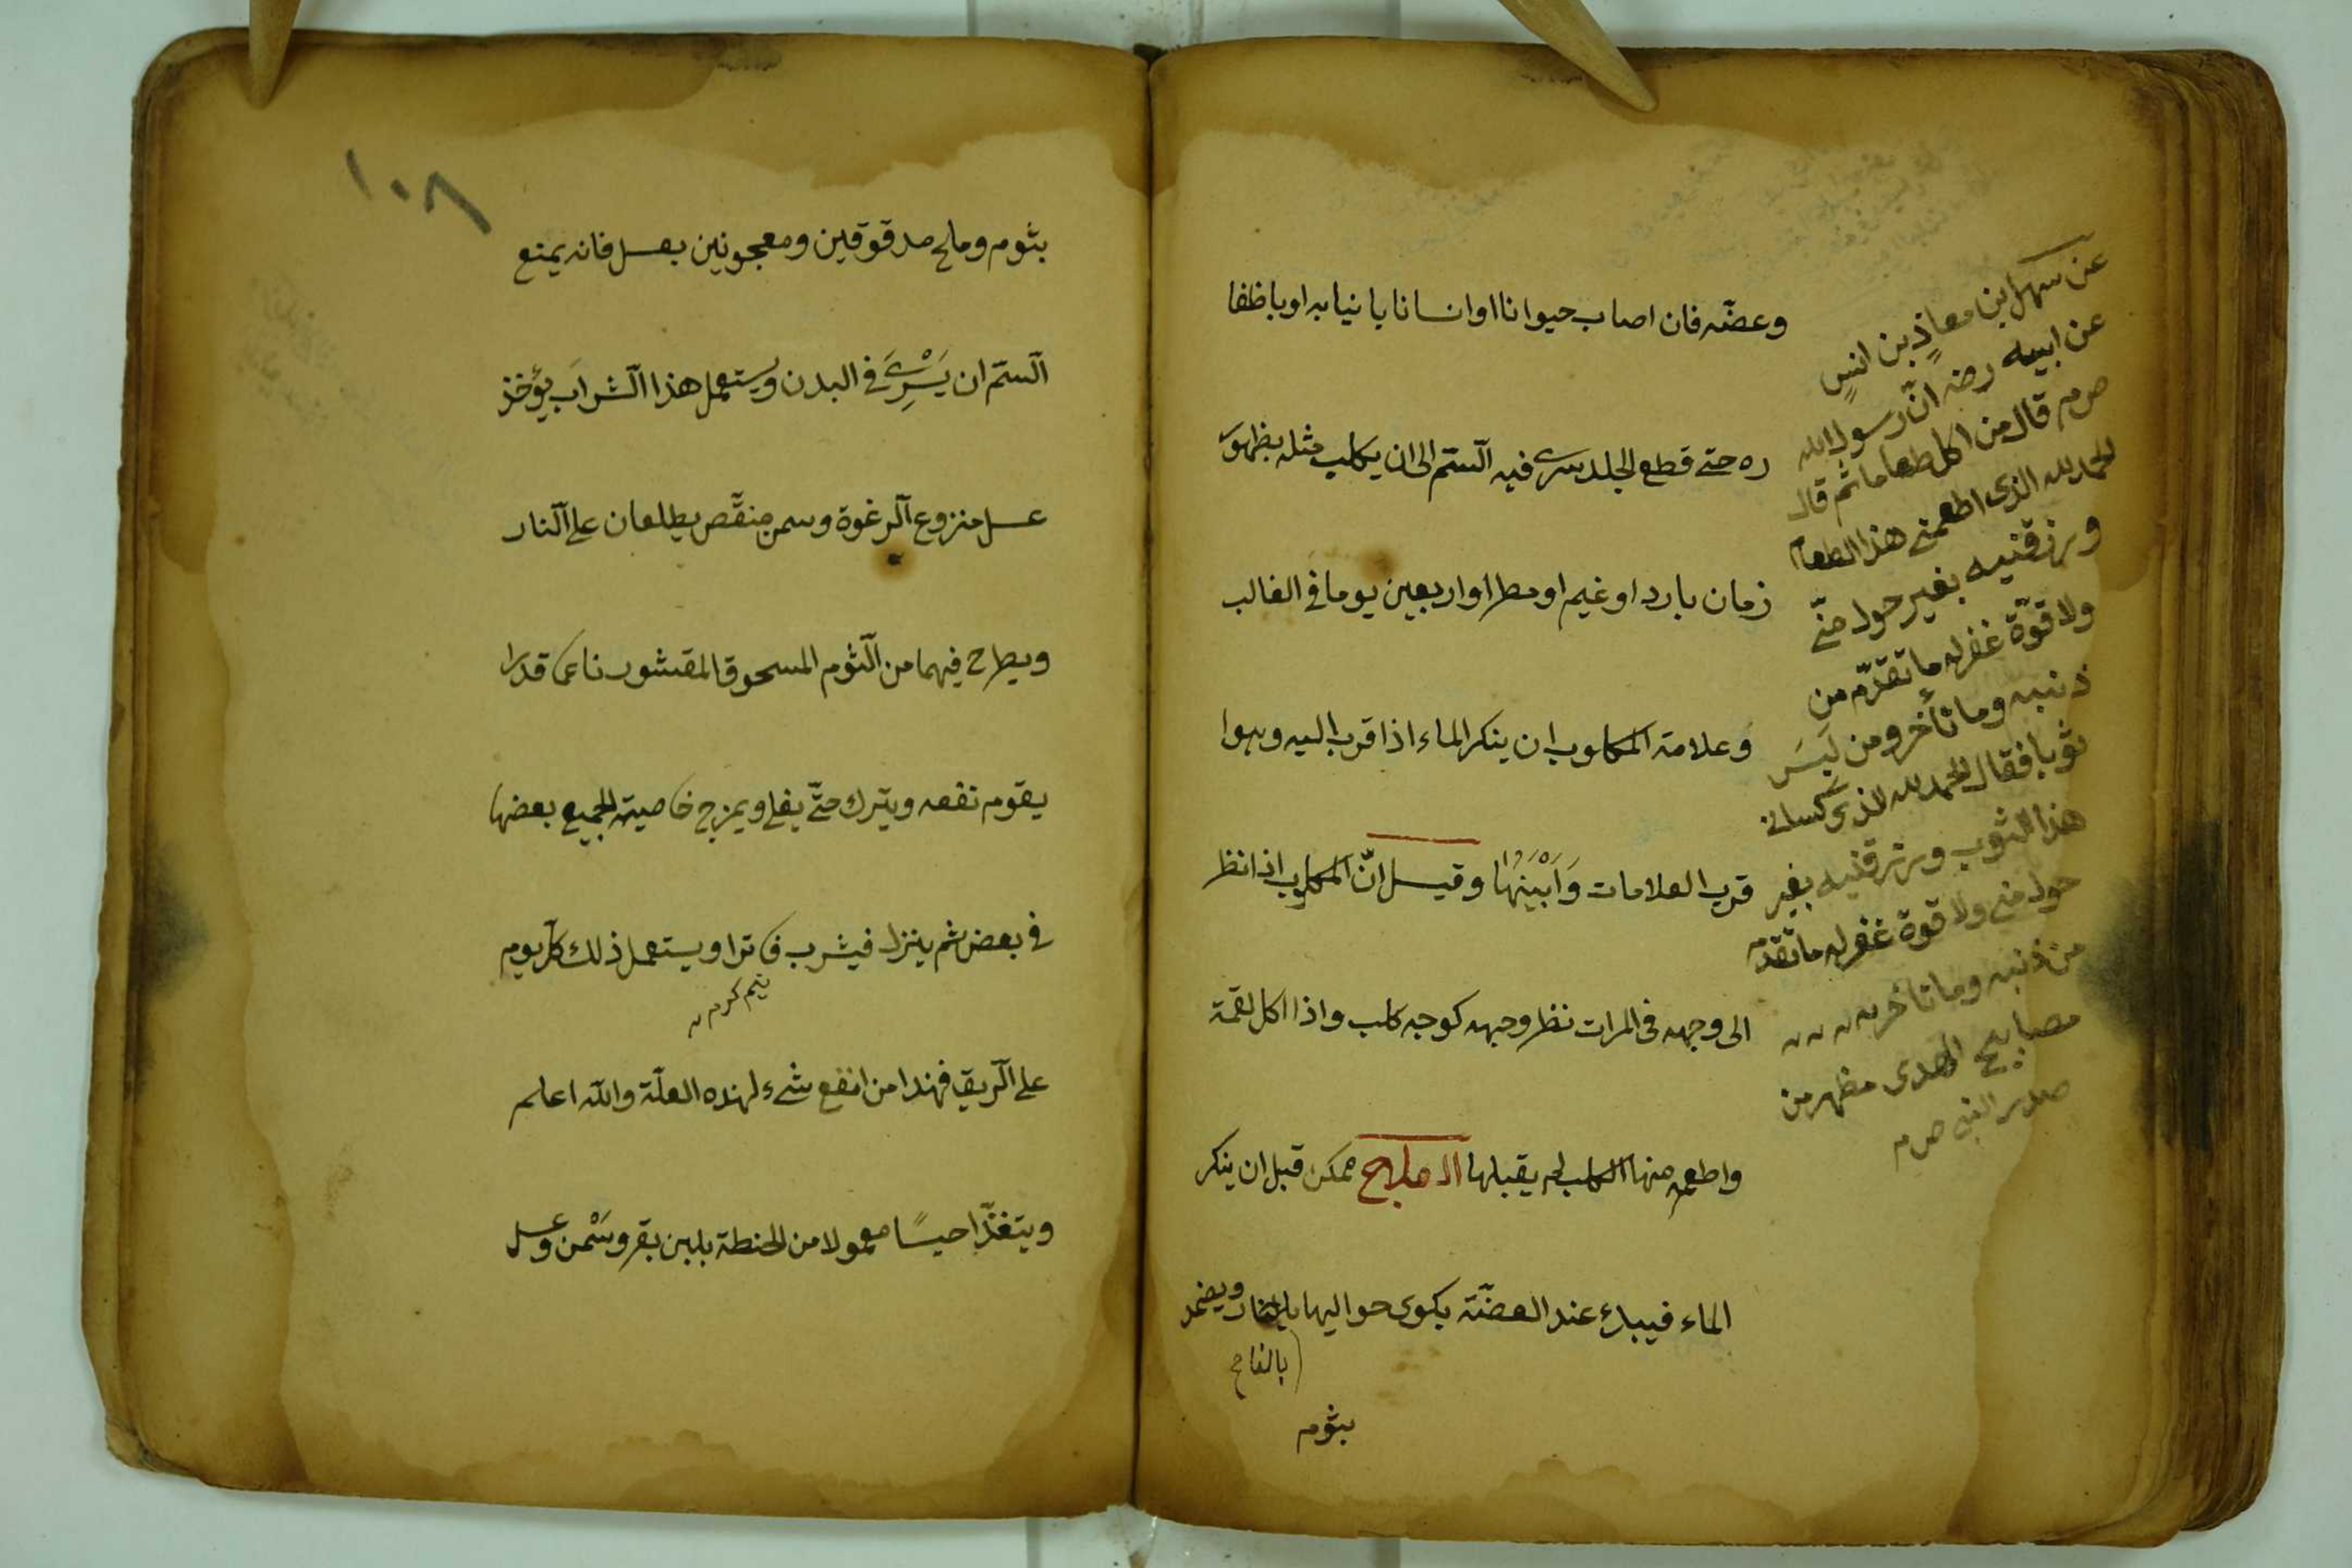 وعضّه فان اصاب حيوانا اوانسانا بانيابه اوباظفا
ره حتى قطع الجلد سرى فيه السّم الى ان يكلب مثله بظهور
زمان بارد اوغيم اومطر اواربعين يوما فى الغالب
وعلامة المكلوب ان ينكر الماء اذا قرب اليه وهوا
قرب العلامات وَاَبْيَنُهَا وقيل انّ المكلوب اذا نظر
الى وجهه فى المرات نظر وجهه كوجه كلب واذا اكل لقمة
واطعم منها الكلب لم يقبلها العلاج ممكن قبل ان ينكر
الماء فيبدء عند العضّة يكوى حواليها بالنار ويضمد
بثوم
عن سهل بن معاذ بن انسٍ
عن ابيه رضه انّ رسول الله
صم قال من اكل طعاما ثم قال
الحمد لله الذى اطعمنى هذا الطعام
ورزقنيه بغير حول منّى
ولا قوّة غفر له ما تقدّم من
ذنبه وما تأخر ومن لَبِسَ
ثوبا فقال الحمد لله الذى كسانى
هذا الثوب ورزقنيه بغير
حول منى ولا قوة غفر له ما تقدّم
من ذنبه وما تاخر
مصابيح الهدى مظهر من
صدر النبى صم
١٠٨
بثوم وملح مدقوقين ومعجونين بعسل فانه يمنع
السّم ان يَسْرِىَ فى البدن ويستعمل هذا الشراب يؤخذ
عسل منزوع الرغوة وسمن منقّص يطلعان على النار
ويطرح فيهما من الثوم المسحوق المقشور ناعما قدرا
يقوم نفعه ويترك حتّى يغلى ويمزج خاصية الجميع بعضها
فى بعض ثم ينزل فيشرب فاترا ويستعمل ذلك كل يوم
نيم كرم
على الريق فهذا من انفع شىء لهذه العلّة والله اعلم
ويتغذّا حيسًا معمولا من الحنطة بلبن بقر وسَمْن وعسل